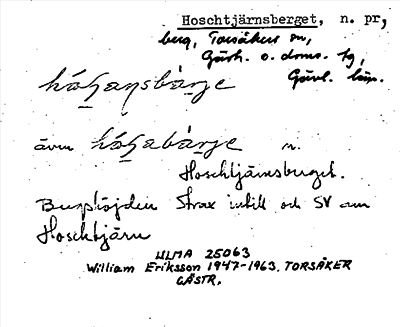 Hoschtjärnsberget, n. pr,
berg, Torsåkers sn,
Gästr. o. doms. hg,
Gävl. län.
även n.
Hoschtjärnsberget.
Berghöjden strax intill och SV om
Hoschtjärn
ULMA 25063
William Eriksson 1947-1963. TORSÅKER
GÄSTR.